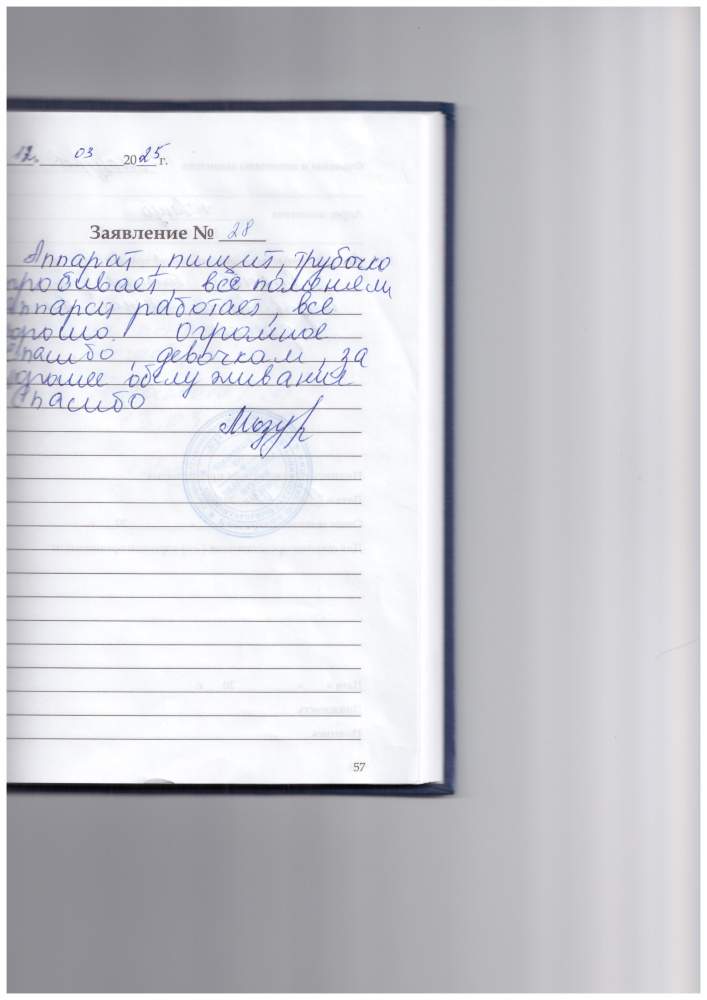 12. 03 2025г.
Заявление № 28
Аппарат, пищит, трубочко
пробивает, всё поменяли
Аппарат работает, все
хорошо. Огромное
спасибо, девочкам, за
хорошее обслуживание
Спасибо
Мазур
57